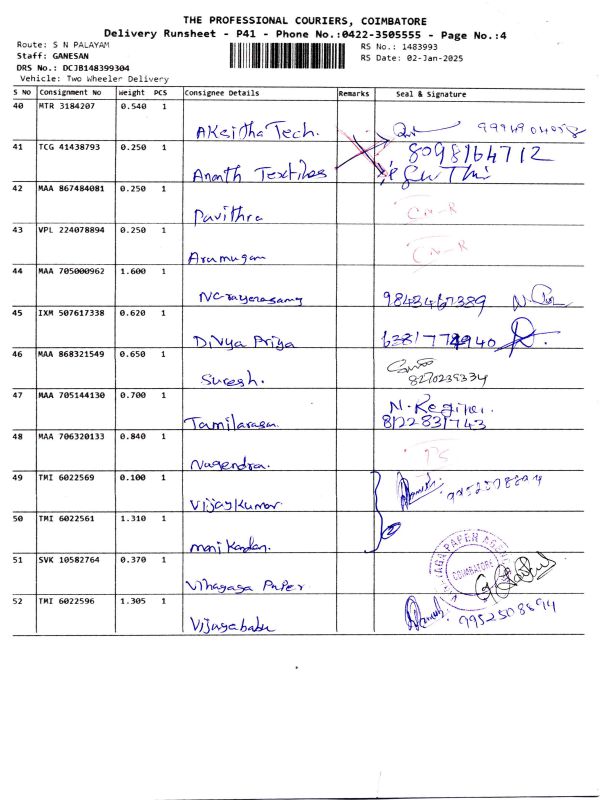 THE PROFESSIONAL COURIERS, COIMBATORE
Delivery Runsheet - P41 - Phone No.:0422-3505555 - Page No.:4
Route: S N PALAYAM
RS No.: 1483993
Staff: GANESAN
RS Date: 02-Jan-2025
DRS No.: DCJB148399304
Vehicle: Two Wheeler Delivery
S No Consignment No Weight PCS Consignee Details Remarks Seal & Signature
40 MTR 3184207 0.540 1
Aksitha Tech.
41 TCG 41438793 0.250 1
8098164712
Ananth Textiles
42 MAA 867484081 0.250 1
Pavithra
43 VPL 224078894 0.250 1
Arumugam
44 MAA 705000962 1.600 1
9843467389
45 IXM 507617338 0.620 1
Divya Priya
46 MAA 868321549 0.650 1
Suresh. 8270239334
47 MAA 705144130 0.700 1
Tamilarasan 8122831743
48 MAA 706320133 0.840 1
Nagendra.
49 TMI 6022569 0.100 1
Vijaykumar
50 TMI 6022561 1.310 1
manikandan.
51 SVK 10582764 0.370 1
COIMBATORE
Vihagaga Paper
52 TMI 6022596 1.305 1
Vijayababu 9952508894